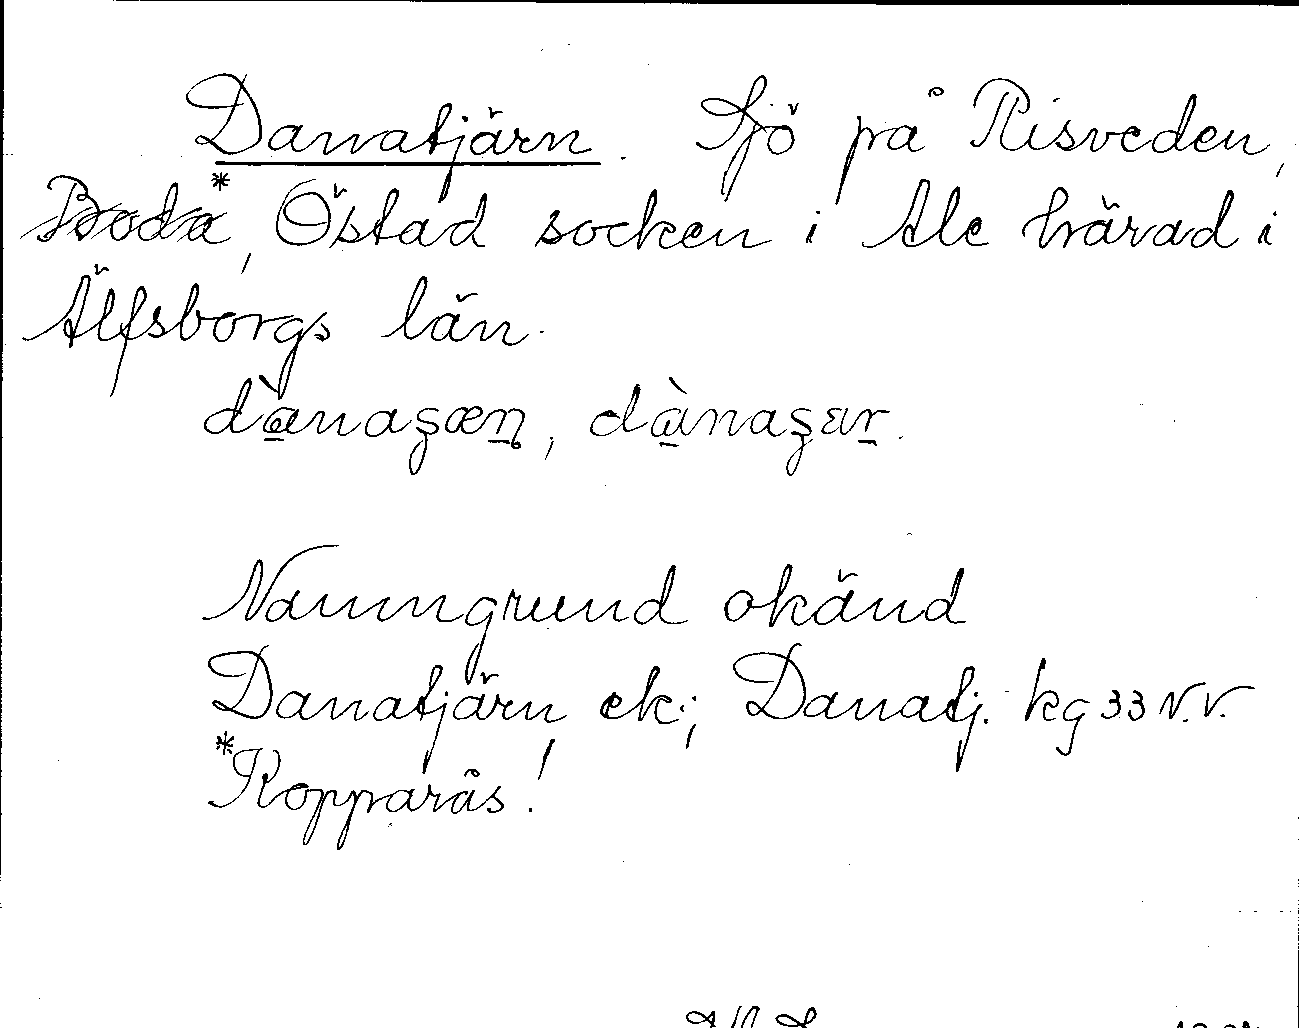 Danatjärn. Sjö på Risveden,
Boda*, Östad socken i Ale härad i
Älfsborgs län.
dànaʂæn, dànaʂær.
Namngrund okänd
Danatjärn ek.; Danatj. kg 33 N.V.
*Kopparås!